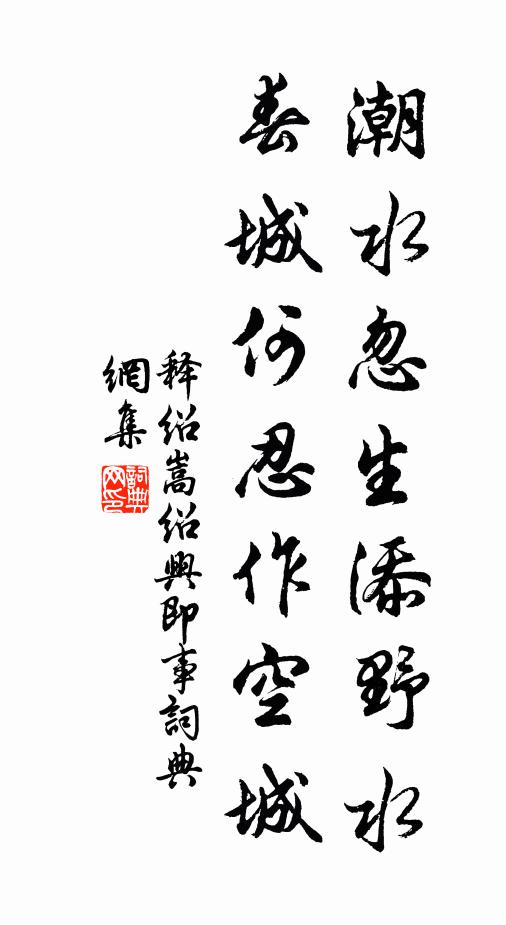 潮水忽生添野水
春城何忍作空城
释绍嵩绍興即事詞典
網集
詞典
网印